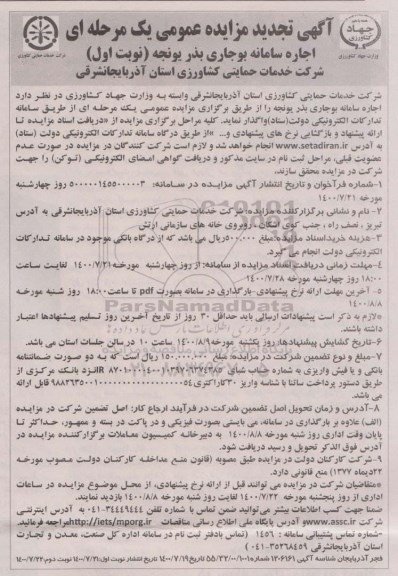 آگهی تجدید مزایده عمومی یک مرحله ای
اجاره سامانه بوجاری بذر یونجه (نوبت اول)
شرکت خدمات حمایتی کشاورزی استان آذربایجانشرقی
شرکت خدمات حمایتی کشاورزی استان آذربایجانشرقی وابسته به وزارت جهاد کشاورزی در نظر دارد
اجاره سامانه بوجاری بذر یونجه را از طریق برگزاری مزایده عمومی یک مرحله ای از طریق سامانه
تدارکات الکترونیکی دولت(ستاد)واگذار نماید. کلیه مراحل برگزاری مزایده از «دریافت اسناد مزایده تا
ارائه پیشنهاد و بازگشایی نرخ های پیشنهادی و... «از طریق درگاه سامانه تدارکات الکترونیکی دولت (ستاد)
به آدرس www.setadiran.ir انجام خواهد شد و لازم است شرکت کنندگان در مزایده در صورت عدم
عضویت قبلی، مراحل ثبت نام در سایت مذکور و دریافت گواهی امضای الکترونیکی (توکن) را جهت
شرکت در مزایده محقق سازند.
۱-شماره فرآخوان و تاریخ انتشار آگهی مزایده در سامانه: ۵۰۰۰۰۱۴۵۵۰۰۰۰۰۳ روز چهارشنبه
مورخه ۱۴۰۰/۷/۲۱
۲- نام و نشانی برگزارکننده مزایده: شرکت خدمات حمایتی کشاورزی استان آذربایجانشرقی به آدرس
تبریز، نصف راه، جنب کوی اشکان، روبروی خانه های سازمانی ارتش
۳-هزینه خرید اسناد مزایده: مبلغ ۵۰۰,۰۰۰ ریال می باشد که از درگاه بانکی موجود در سامانه تدارکات
الکترونیکی دولت انجام می گیرد.
۴-مهلت زمانی دریافت اسناد مزایده از سامانه: از روز چهارشنبه مورخه ۱۴۰۰/۷/۲۱ لغایت ساعت
۱۸:۰۰ روز چهارشنبه مورخه ۱۴۰۰/۷/۲۸
۵- آخرین مهلت ارائه نرخ پیشنهادی-بارگذاری در سامانه بصورت pdf تا ساعت ۱۸:۰۰ روز شنبه مورخه
۱۴۰۰/۸/۸
*لازم به ذکر است پیشنهادات ارسالی باید حداقل ۳۰ روز از تاریخ آخرین روز تسلیم پیشنهادها اعتبار
داشته باشند.
۶-تاریخ گشایش پیشنهادها: روز یکشنبه مورخه ۱۴۰۰/۸/۹ ساعت ۱۰ در سالن جلسات استان می باشد.
۷-مبلغ و نوع تضمین شرکت در مزایده: مبلغ ۱۵۰,۰۰۰,۰۰۰ ریال است که به دو صورت ضمانتنامه
بانکی و یا فیش واریزی به شماره حساب شبای
طریق دستور پرداخت ساتنا با شناسه واریز ۳۰ کاراکتری قابل ارائه
می باشد.
۸-آدرس و زمان تحویل اصل تضمین شرکت در فرآیند ارجاع کار: اصل تضمین شرکت در مزایده
(الف) علاوه بر بارگذاری در سامانه، می بایستی بصورت فیزیکی و در پاکت در بسته و ممهور، حداکثر تا
پایان وقت اداری روز شنبه مورخه ۱۴۰۰/۸/۸ به دبیرخانه کمیسیون معاملات برگزارکننده مزایده در
آدرس فوق الذکر تحویل و رسید دریافت شود.
۹-شرکت کارکنان دولت در مزایده طبق مصوبه (قانون منع مداخله کارکنان دولت مصوب مورخه
۲۲دیماه ۱۳۳۷) منع قانونی دارد.
*متقاضیان شرکت در مزایده می توانند قبل از ارائه نرخ پیشنهادی، از محل موضوع مزایده در ساعات
اداری از روز پنجشنبه مورخه ۱۴۰۰/۷/۲۲ لغایت روز شنبه مورخه ۱۴۰۰/۸/۸ بازدید نمایند.
ضمنا جهت کسب اطلاعات بیشتر می توانید ضمن تماس با شماره تلفن ۳۴۴۴۹۴۴۴-۰۴۱ به آدرس اینترنتی
www.assc.ir و آدرس پایگاه ملی اطلاع رسانی مناقصات http://iets/mporg.ir مراجعه فرمائید.
-شماره تماس پشتیبانی سامانه : ۱۴۵۶ (تماس بادفتر ثبت نام در سامانه اداره کل صنعت، معدن و تجارت
استان آذربایجانشرقی ۳۵۲۶۸۴۵۹-۰۴۱)